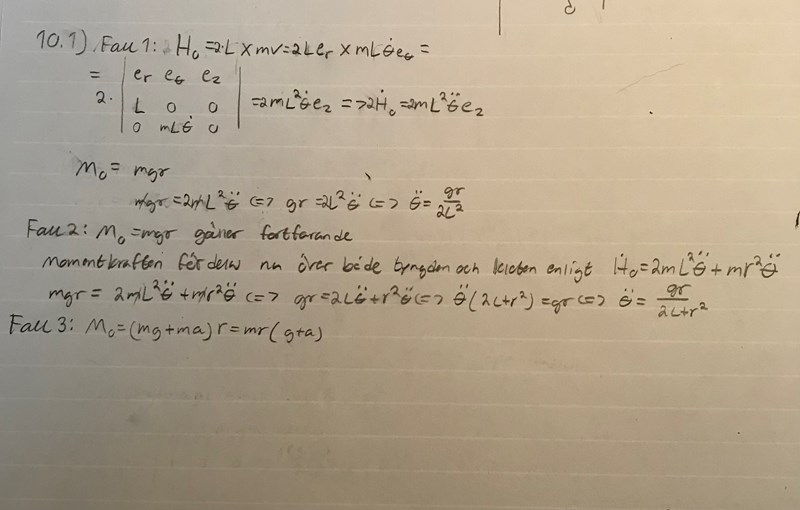 10.1) Fall 1: H₀ = 2·L × mv = 2L eᵣ × mLθ̇e_θ =
= 2. | eᵣ e_θ e_z |
| L 0 0 | = 2mL²θ̇e_z => 2Ḣ₀ = 2mL²θ̈e_z
| 0 mLθ̇ 0 |
M₀ = mgr
mgr = 2mL²θ̈ <=> gr = 2L²θ̈ <=> θ̈ = gr/2L²
Fall 2: M₀ = mgr gäller fortfarande
Momentkraften fördelas nu över både tyngden och kloten enligt Ḣ₀ = 2mL²θ̈ + mr²θ̈
mgr = 2mL²θ̈ + mr²θ̈ <=> gr = 2Lθ̈ + r²θ̈ <=> θ̈(2L+r²) = gr <=> θ̈ = gr/2L+r²
Fall 3: M₀ = (mg+ma)r = mr(g+a)